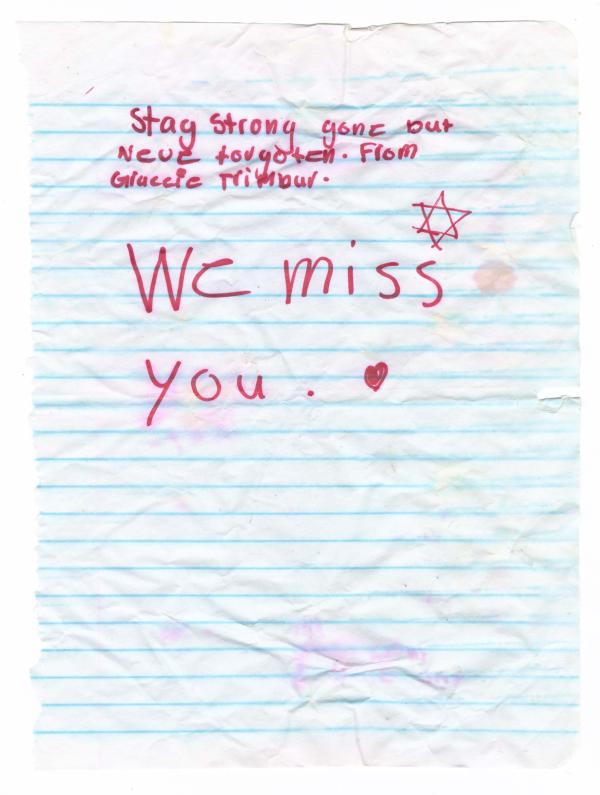 Stay strong gone but
Neve forgoten. From
Graccie Trimbur.
We miss
you.